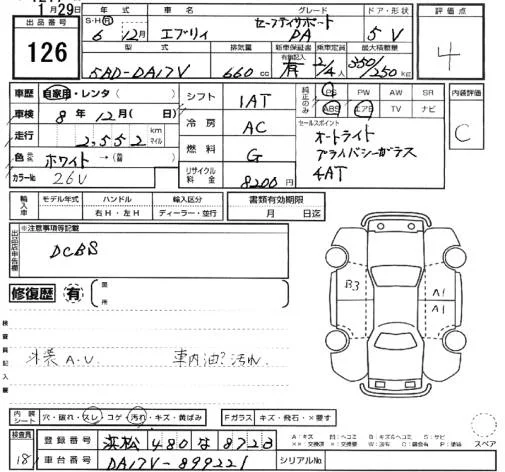 1月29日
出品番号 126
年式 車名 グレード ドア・形状 評価点
S・H・R 6年12月 エブリィ セーフティサポート PA 5 V 4
型式 排気量 新車保証書 有償記入 乗車定員 最大積載量
5BD-DA17V 660 cc 有 2/4人 350/250kg
車歴 自家用・レンタ( )
車検 8年12月( 日)
走行 2,552 km マイル
色 ホワイト→(替 )
カラーNo. 26U
シフト 1AT
冷房 AC
燃料 G
リサイクル料金 8200円
純正のみ PS PW AW SR
ABS エアB TV ナビ
セールスポイント
オートライト
プライバシーガラス
4AT
内装評価
C
輸入車 モデル年式 ハンドル 輸入区分
右H・左H ディーラー・並行
書類有効期限
月 日迄
出品店申告欄 ※注意事項等記載
DCBS
修復歴 有 箇所
検査員記入欄
A.U. 車内油?汚れ
B3 A1
A1
内装シート 穴・破れ・スレ・コゲ・汚れ・キズ・黄ばみ Fガラス キズ・飛石・×要す
検査員 18
登録番号 浜松 480 な 8723
車台番号 DA17V-899221 シリアルNo.
スペア